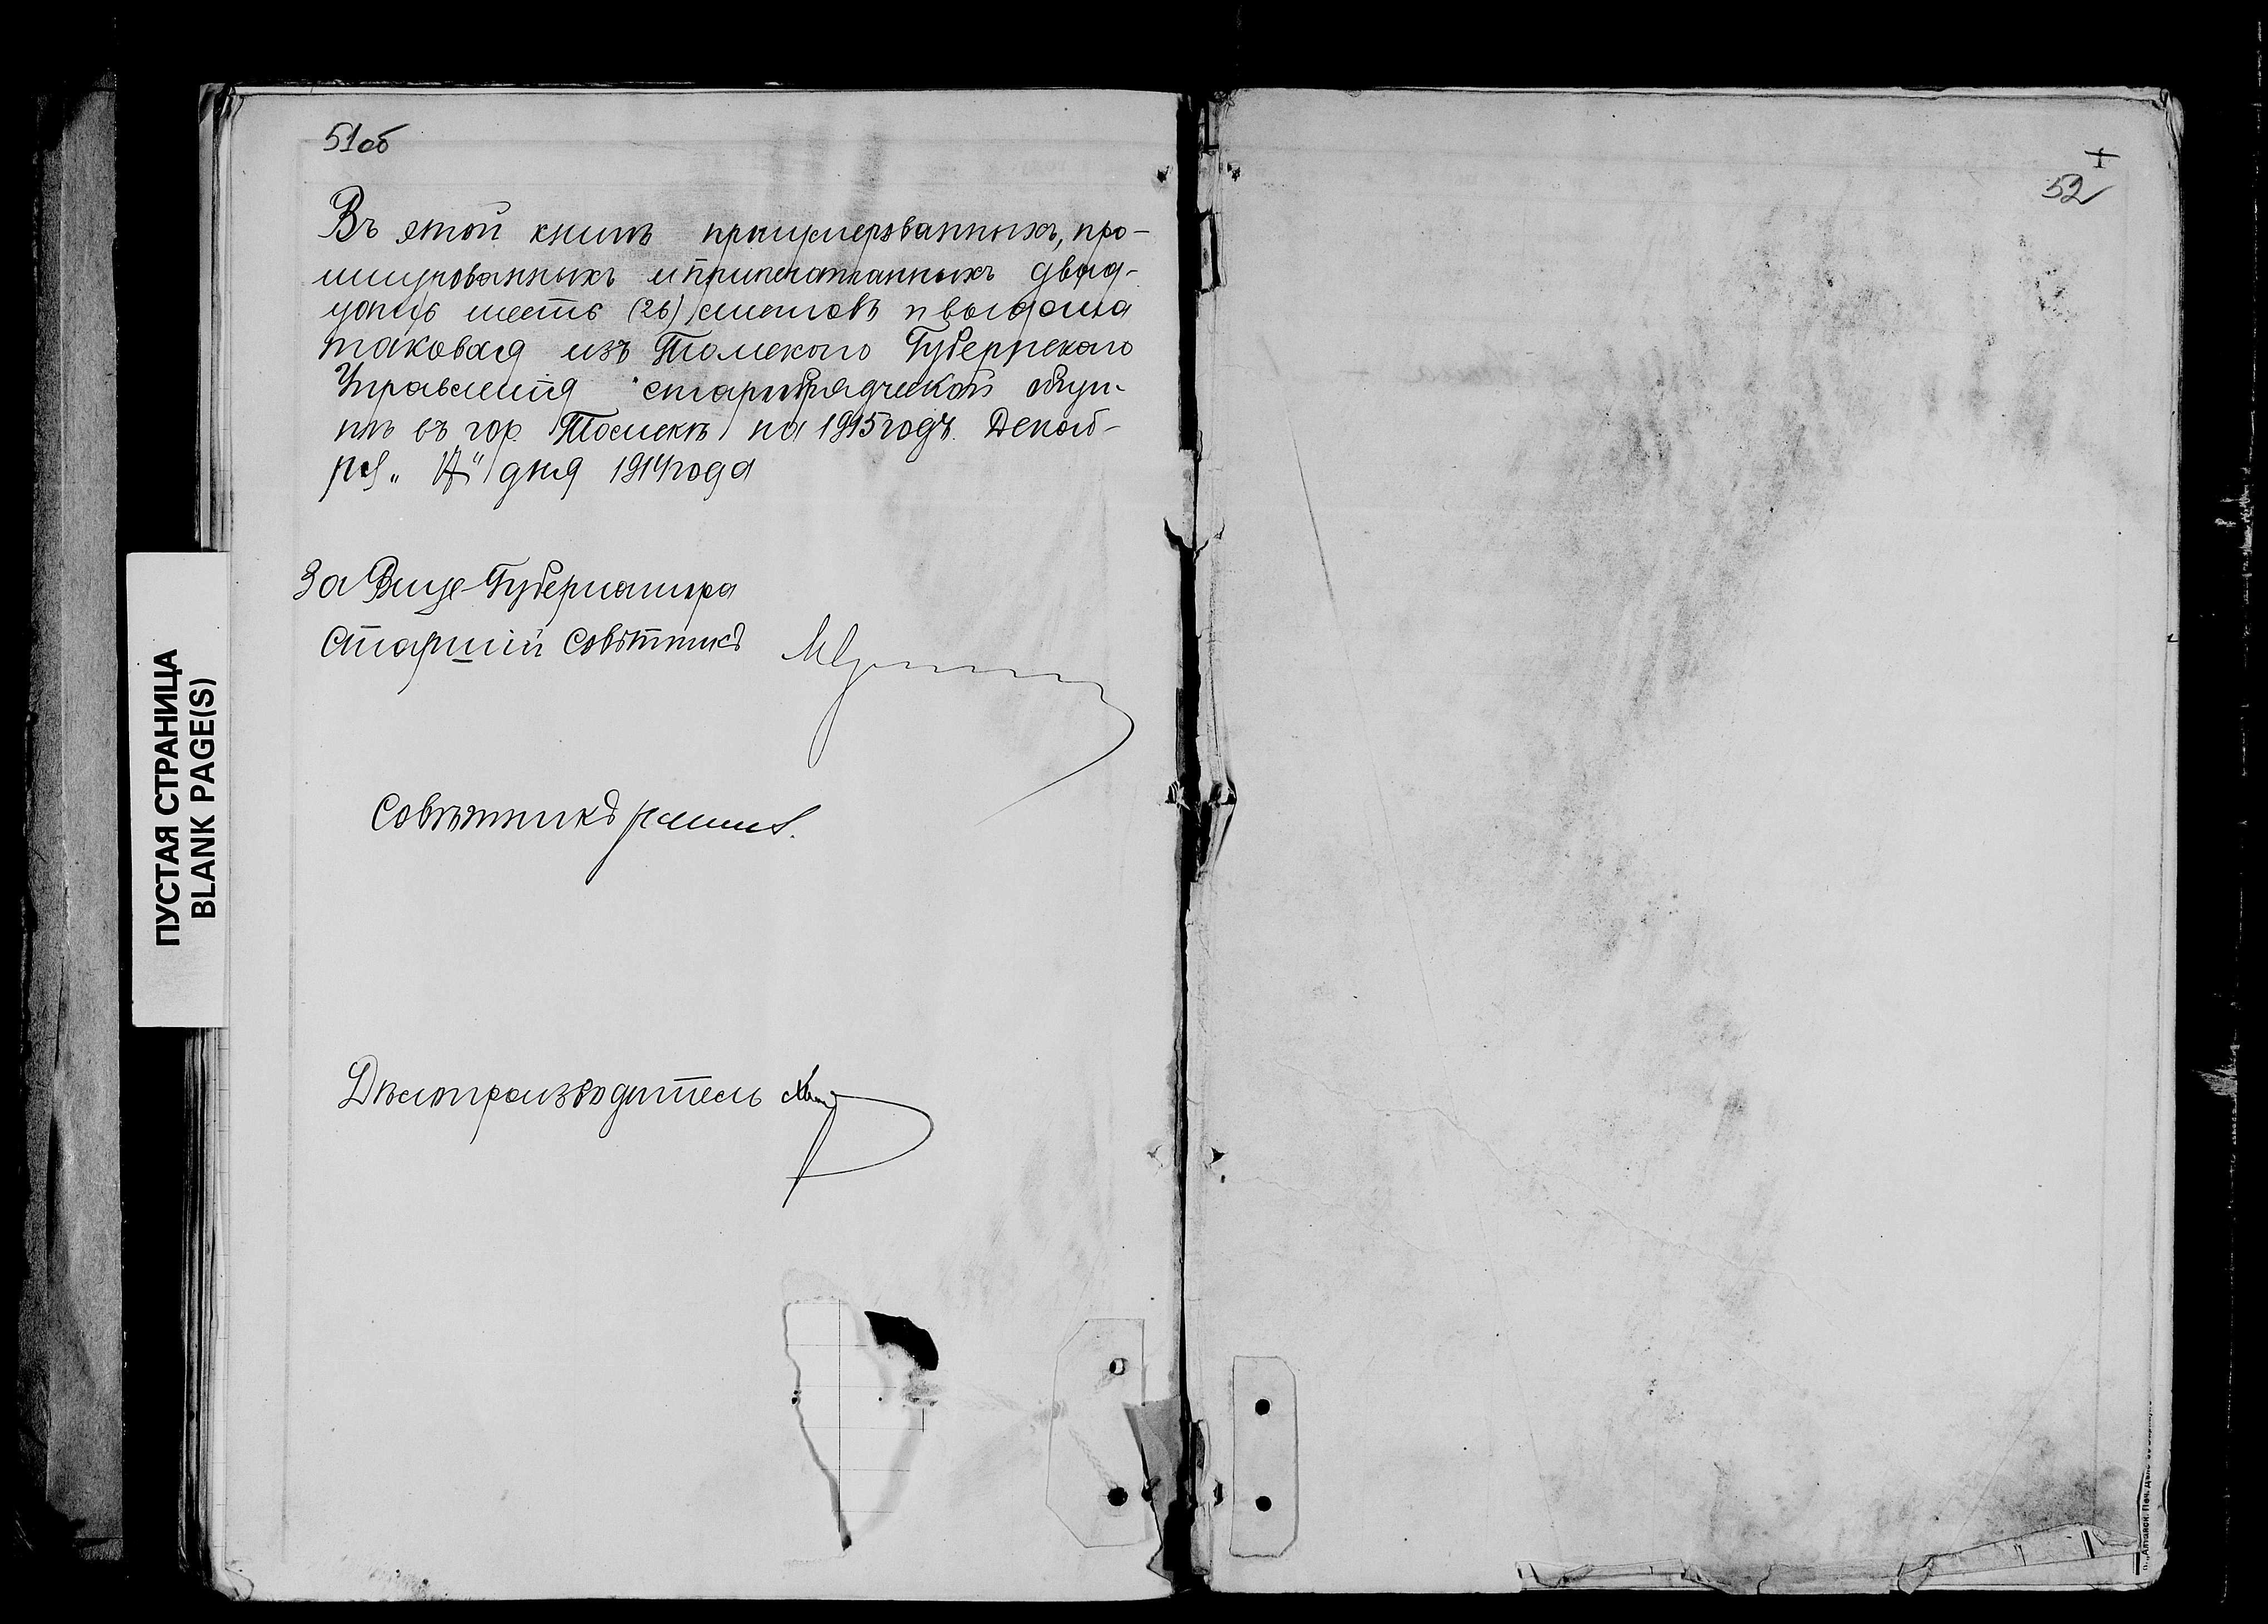 51об
Въ этой книгѣ пронумерованныхъ, про-
шнурованныхъ и припечатанныхъ двад-
цать шесть (26) листовъ и выдана
таковая изъ Томского Губернского
Управленія старообрядческой общи-
нѣ въ гор. Томскѣ на 1915 годъ. Декаб-
ря „17" дня 1914 года
За Вице-Губернатора
Старшій Совѣтникъ
Совѣтникъ
Дѣлопроизводитель
ПУСТАЯ СТРАНИЦА
BLANK PAGE(S)
52